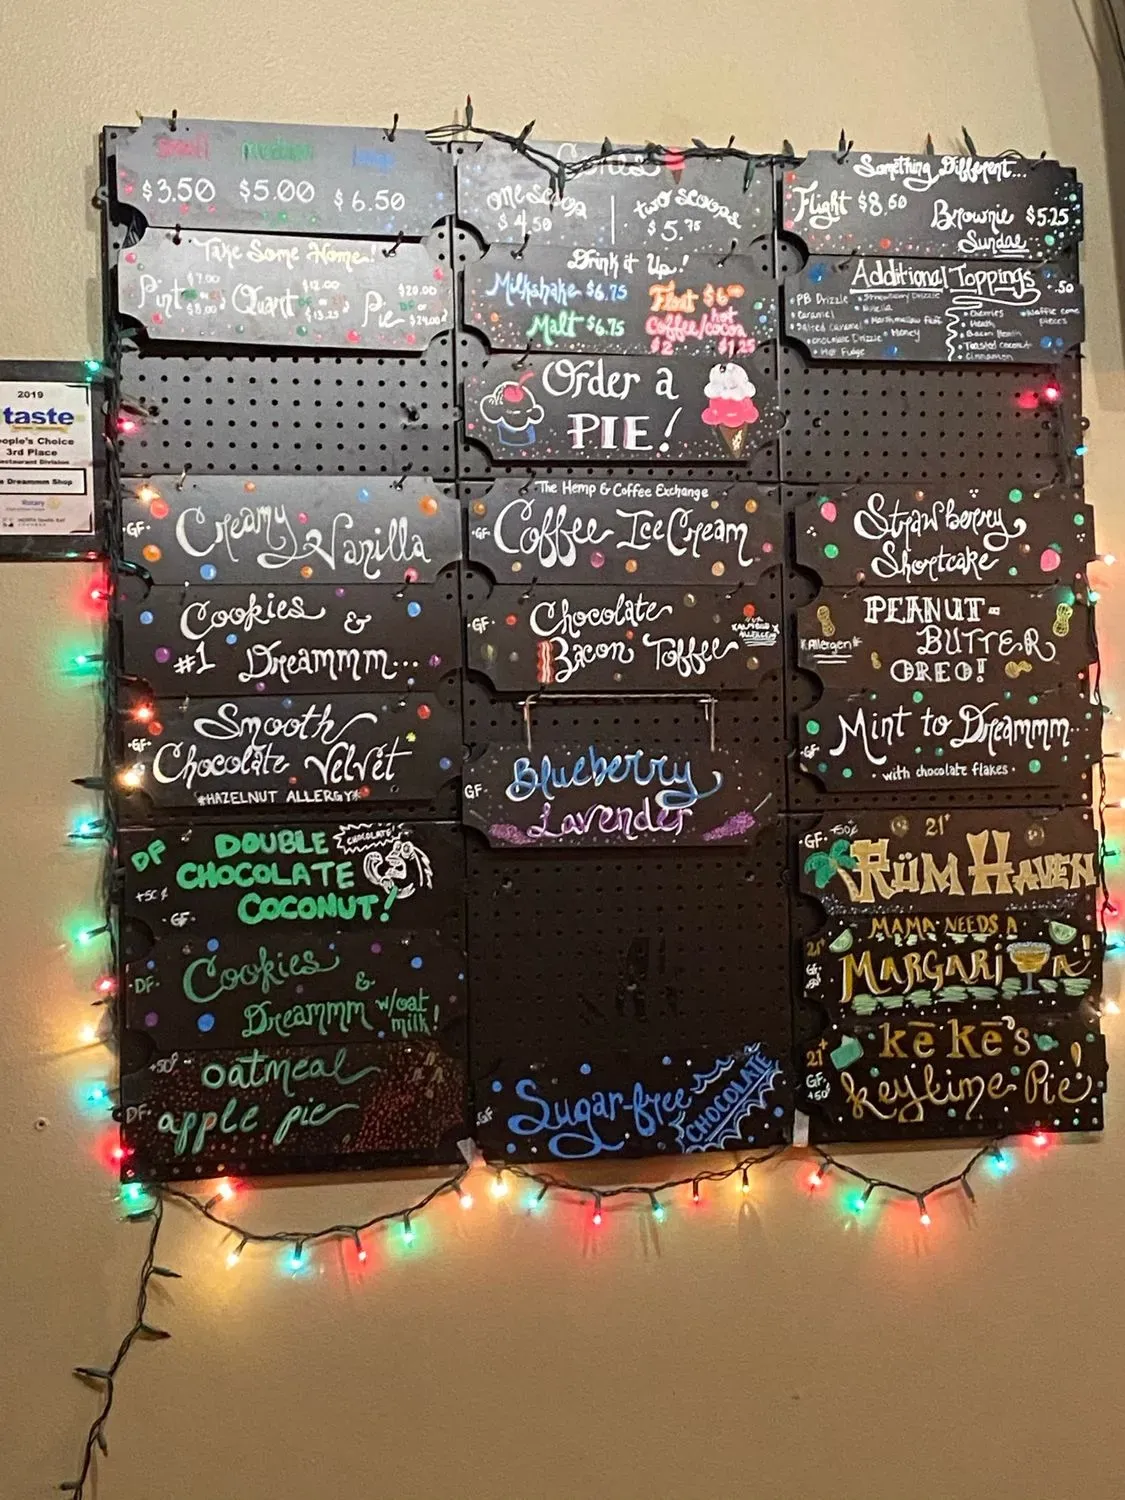 small medium large
$3.50 $5.00 $6.50
Cones
one scoop
$4.50
two scoops
$5.75
Something Different...
Flight $8.50
Brownie $5.25
Sundae
Take Some Home!
Pint $7.00
$8.00
Quart $12.00
or
$13.25
Pie $20.00
or
$24.00
Drink it Up!
Milkshake $6.75
Malt $6.75
Float $6
hot
Coffee/cocoa
$2 $1.25
Additional Toppings
.50
PB Drizzle
Strawberry Drizzle
Caramel
Nutella
Salted Caramel
Marshmallow Fluff
Chocolate Drizzle
Honey
Hot Fudge
Cherries
Heath
Bacon
Toasted coconut
Cinnamon
Waffle cone
pieces
Order a
PIE!
2019
taste
eople's Choice
3rd Place
estaurant Division
Dreammm Shop
Rotary
·GF· Creamy Vanilla
The Hemp & Coffee Exchange
·GF· Coffee Ice Cream
Strawberry
Shortcake
Cookies &
#1 Dreammm...
·GF· Chocolate
Bacon Toffee
*ALMOND
ALLERGY*
PEANUT-
*Allergen*
BUTTER
OREO!
Smooth
·GF· Chocolate Velvet
*HAZELNUT ALLERGY*
GF· Blueberry
Lavender
·GF· Mint to Dreammm...
· with chocolate flakes ·
DF DOUBLE
CHOCOLATE!
+50¢ CHOCOLATE
·GF· COCONUT!
GF· +50¢ 21+
RÜM HAVEN
·DF· Cookies &
Dreammm w/oat
milk!
MAMA NEEDS A
21+
GF
MARGARITA!
+50¢ oatmeal
DF· apple pie
GF Sugar-free
CHOCOLATE
21+ kē kē's
GF·
+50¢ keylime Pie!